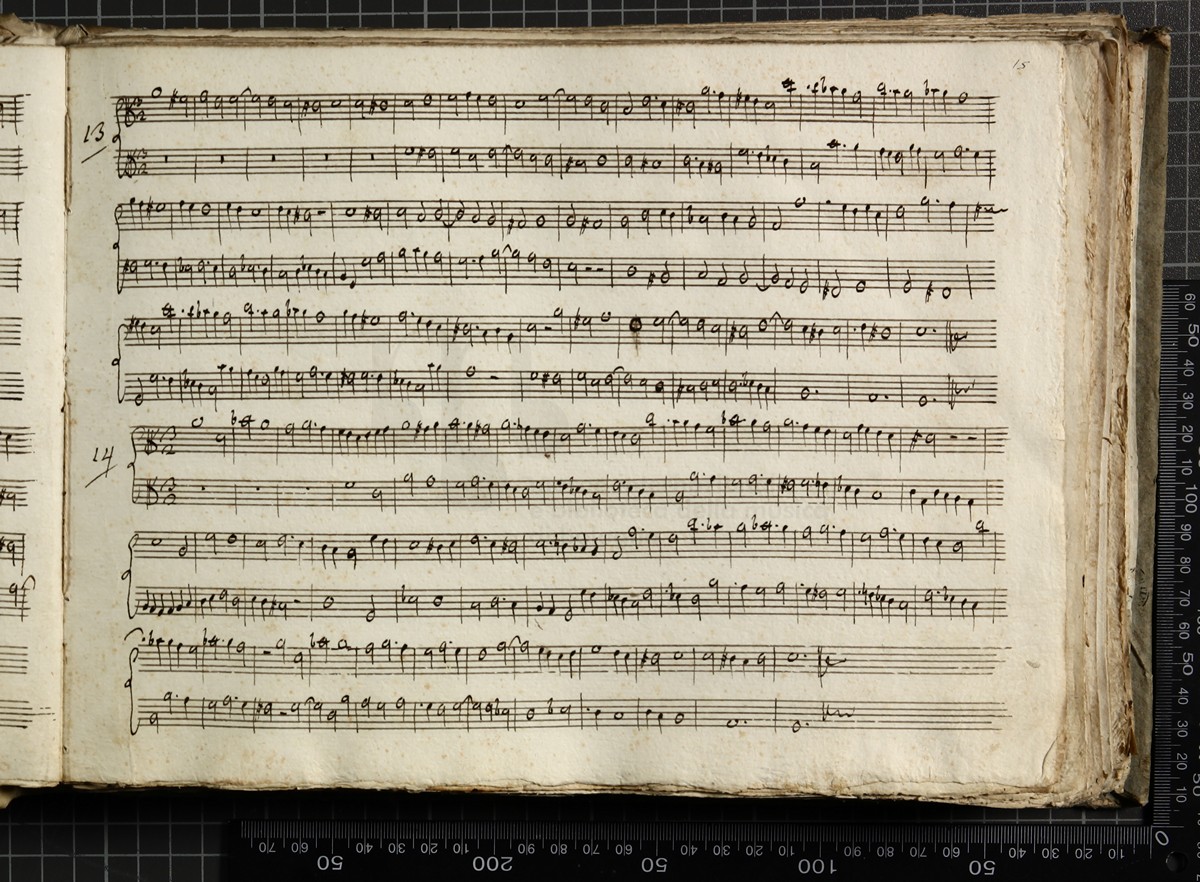 15
13
14
e biblioteca della musica
60
50
40
30
20
10
100
90
80
70
60
50
40
30
20
10
0
70
60
50
40
30
20
10
200
90
80
70
60
50
40
30
20
10
100
90
80
70
60
50
40
30
20
10
0